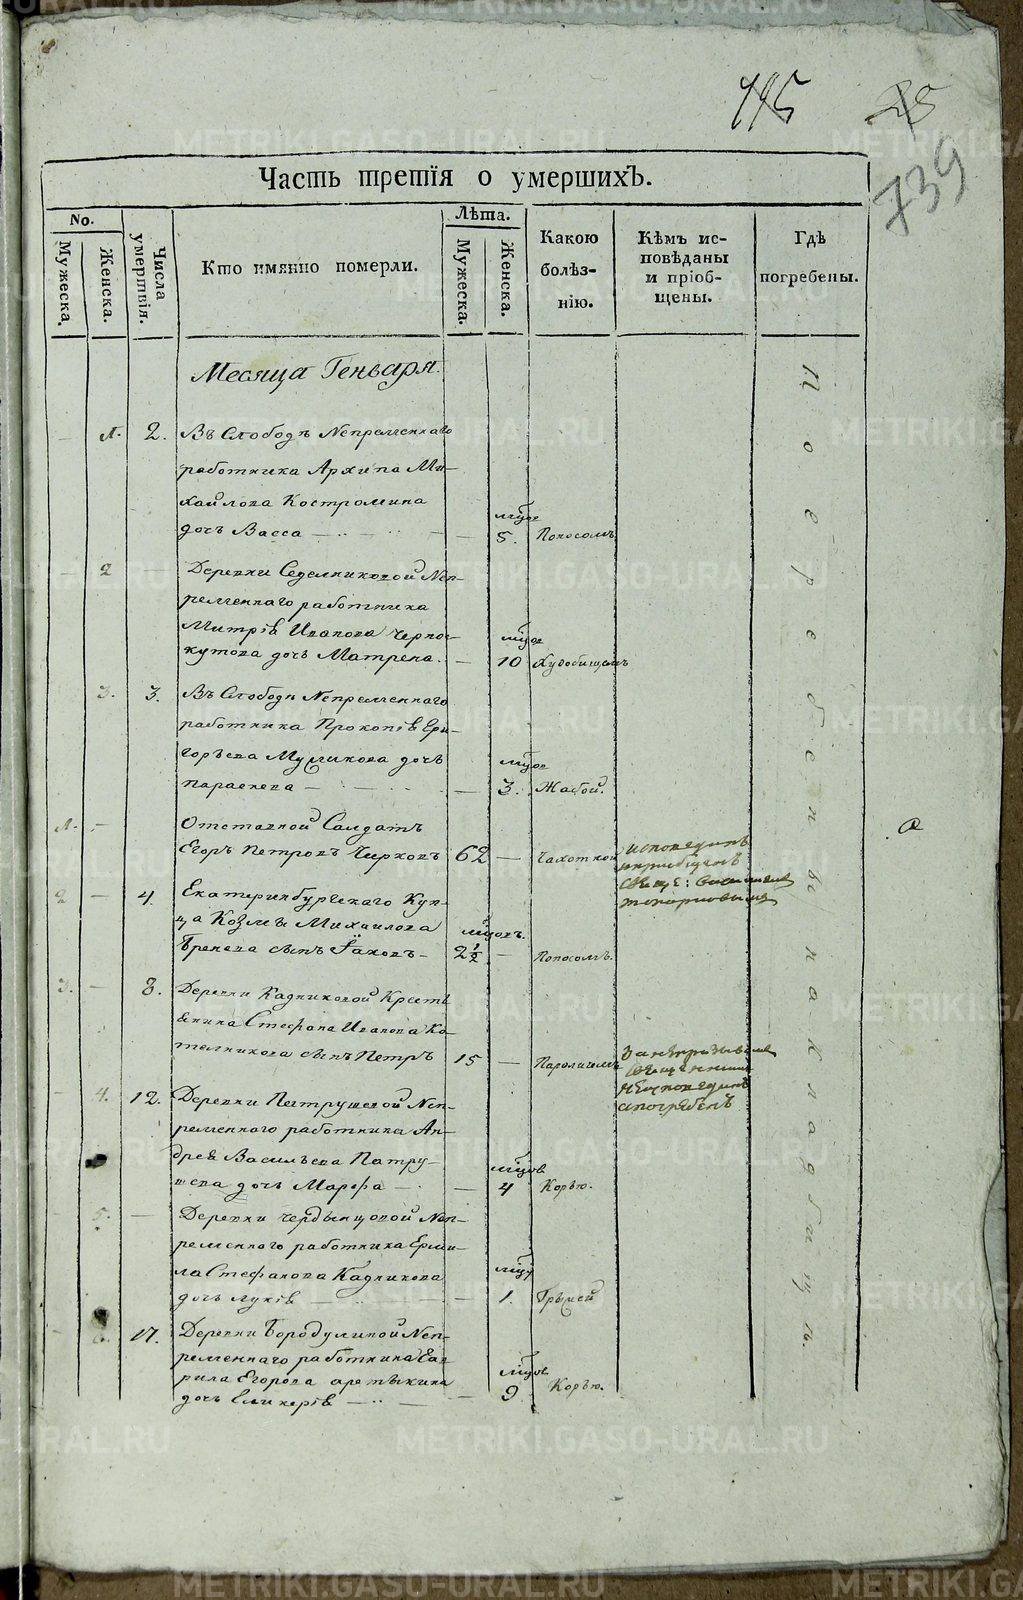 115 25
739
Часть третія о умершихъ.
No. Лѣта.
Мужеска. Женска. Числа умертвія. Кто имянно померли. Мужеска. Женска. Какою болѣз-нію. Кѣмъ ис-повѣданы и пріоб-щены. Гдѣ погребены.
Месяца Генваря
1. 2. Въ Слободѣ Непременнаго
работника Архипа Ми-
хайлова Костромина мцов
дочь Васса 5. Поносомъ
2 Деревни Седелниковой Неп-
ременнаго работника
Митрія Иванова Черно- мцов
кутова дочь Матрена. 10
3. 3. Въ Слободѣ Непременнаго
работника Прокопія Гри-
горьева дочь мцов
Параскева 3. Жабой.
1. Отставной Салдатъ
Егоръ Петровъ Чирковъ 62 Чахоткой исповеданъ
и приобщенъ
2 4. Екатеринбургскаго Куп-
ца Козмы Михаилова мцовъ
сынъ Іаковъ 2½ Поносомъ
3. 8. Деревни Кадниковой Кресть
янина Стефана Иванова Ко-
телникова сынъ Петръ 15 Параличемъ
а погребенъ
4. 12. Деревни Патрушевой Неп-
ременнаго работника Ан-
дрея Васильева Патру- мцов
шева дочь Марфа 4 Корью.
5. Деревни Чердынцовой Неп-
ременнаго работника Ерми-
ла Стефанова Кадникова мцу
дочь Лукія 1. Грыжей
6. 17. Деревни Бородулиной Неп-
ременнаго работника Гав
рила Егорова мцов
дочь Гликерія 9 Корью.
Погребены на кладбищѣ.
а
METRIKI.GASO-URAL.RU